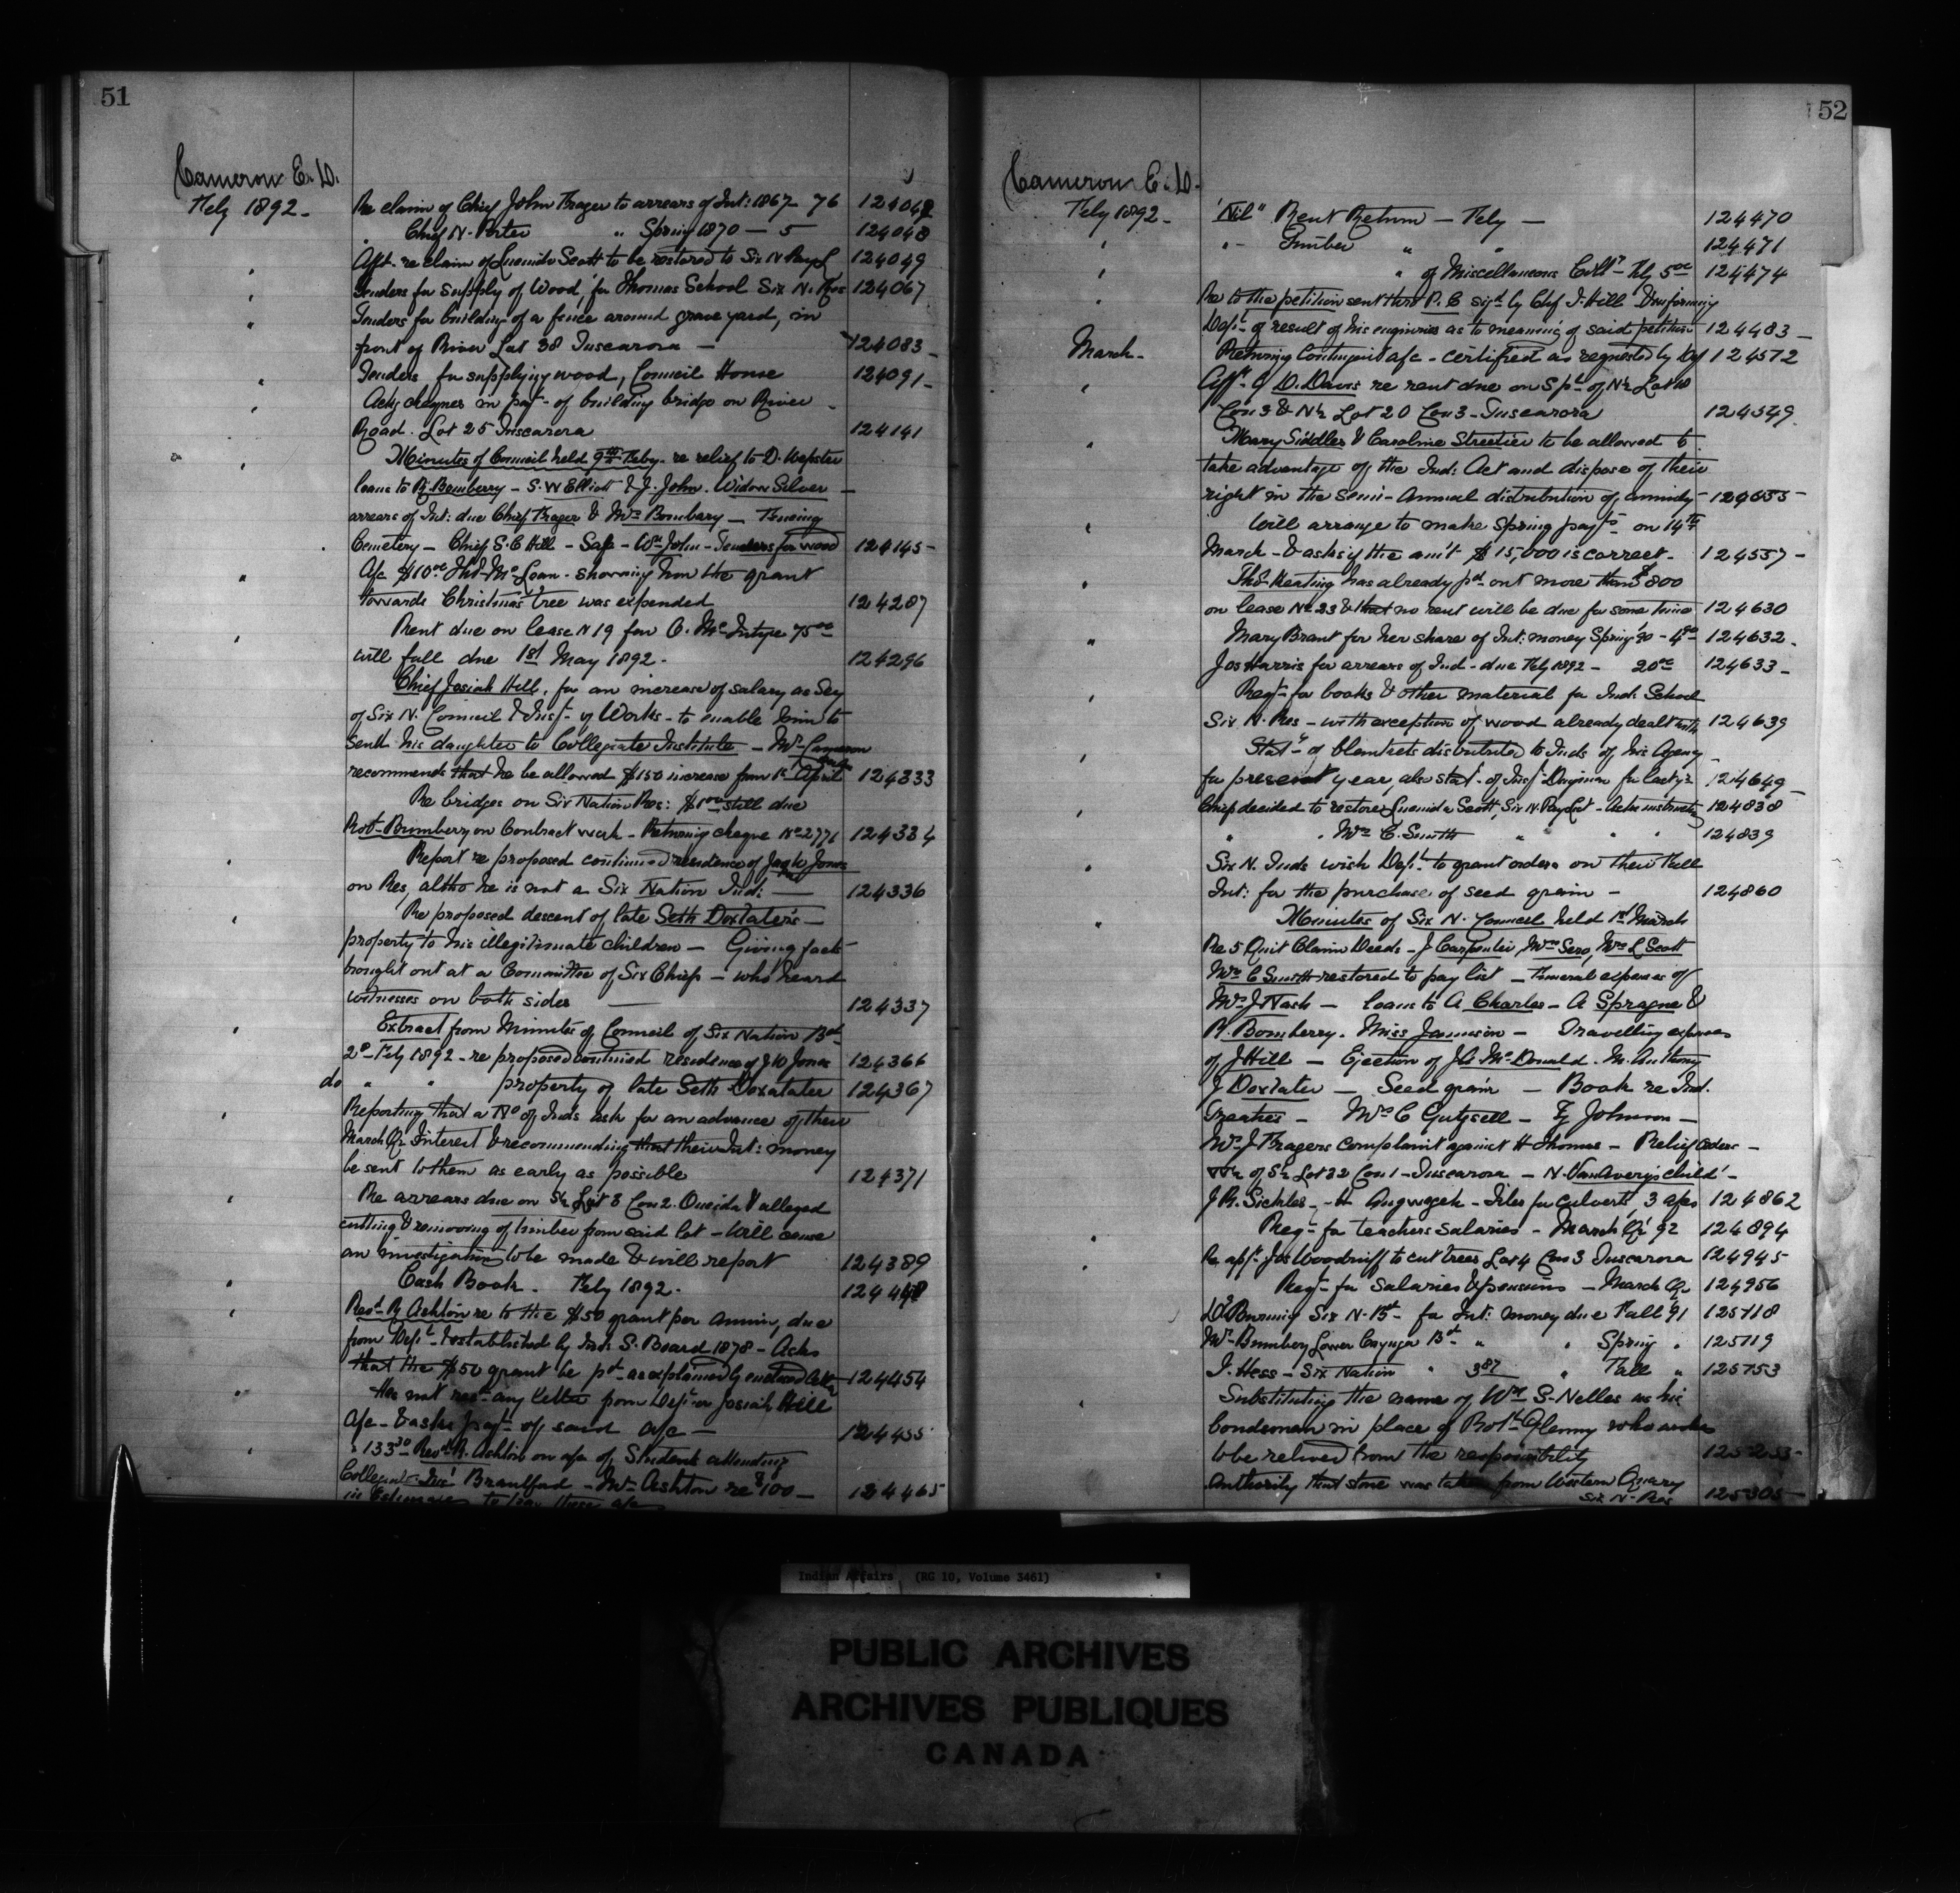 51
Cameron E. D.
Feby 1892 -
Re claim of Chief John Frazer to arrears of Int: 1867 - 76 124042
" Chief N. Porter " Spring 1870 - 5 124048
Afft. re claim of Lucinda Scott to be restored to Six N Pay L 124049
Tenders for supply of Wood, for Thomas School Six N. Res 124067
Tenders for building of a fence around grave yard, in
front of River Lot 38 Tuscarora - 124083 -
Tenders for supplying wood, Council House 124091 -
Ackg cheques in payt - of building bridge on River -
Road. Lot 25 Tuscarora 124141
Minutes of Council held 9th Feby - re relief to D. Webster
loans to R. Bomberry - S. W Elliott & J. John. Widow Silver -
arrears of Int: due Chief Frazer & Mrs Bombary - Fencing
Cemetery - Chief S. C Hill - Safe - Wm John - Tenders for wood 124145 -
A/c $10.00 - Loan - showing how the grant
towards Christmas tree was expended 124287
Rent due on lease N 19 for O. McIntype 75.00
will fall due 1st May 1892 - 124296
Chief Josiah Hill, for an increase of salary as Secy
of Six N. Council & Insp - of Works - to enable him to
send his daughter to Collegiate Institute - Mr Cameron
recommends that he be allowed $150 increase from 1st April 124333
Re bridges on Six Nation Res: still due
Robt Bumbery on Contract work - Returning cheque No 2771 124334
Report re proposed continued residence of Jones
on Res, altho he is not a Six Nation Ind: - 124336
Re proposed descent of late Seth Doxtater's -
property to his illegitimate children - Giving facts
brought out at a Committee of Six Chiefs - who heard
witnesses on both sides - 124337
Extract from Minutes of Council of Six Nation Bd
2d Feby 1892 - re proposed continued residence of J W Jones 124366
do " " property of late Seth Doxtater 124367
Reporting that a No of Inds ask for an advance of their
March Qr Interest & recommending that their Int: money
be sent to them as early as possible 124371
Re arrears due on S½ Lot 8 Con 2. Oneida & alleged
cutting & removing of timber from said lot - will cause
an investigation to be made & will report 124389
Cash Book - Feby 1892 -
Revd R Ashton re to the $50 grant per annum, due
from Dept - & established by Inds S. Board 1878 - Asks
that the $50 grant be pd - as explained by enclosed 124454
Has not recd any letter from Dept - or Josiah Hill
a/c - & asks payt - of said a/c - 124455
" 133.30 Revd R. Ashton on a/c of Students attending
Collegiate Inst Brantford - Mr Ashton re $100 - 124465
in Estimates to pay these a/cs
52
Cameron E. D.
Feby 1892 -
"Nil" Rent Return - Feby - 124470
" - Timber " " 124471
" of Miscellaneous Collns - Feby 5.00 124474
Re to the petition sent thro P. C sigd by Chf J. Hill & informing
Dept - of result of his enquiries as to meaning of said petition 124483 -
March -
Returning Contingent a/c - certified as requested by Dept 124572
Afft - of D. Davis re rent due on S pt of N½ Lot 10
Con 3 & N½ Lot 20 Con 3 - Tuscarora 124549.
Mary Siddler & Caroline Streetier to be allowed to
take advantage of the Ind: Act and dispose of their
right in the Semi-Annual distribution of annuity - 124555 -
Will arrange to make Spring payts on 14th
March - & asks if the amt - $15,000 is correct - 124557 -
Thos Keating has already pd out more than $800
on lease No 23 & that no rent will be due for some time 124630
Mary Brant for her share of Int: money Spring '90 - 4.50 124632 -
Jos Harris for arrears of Ind - due Feby 1892 - 20.00 124633 -
Reqn - for books & other material for Ind. School
Six N. Res - with exception of wood already dealt with 124639
Statt of blankets distributed to Inds of his Agency
for present year, also statt - of Insp Dingman for last yr 124649 -
Chiefs decided to restore Lucinda Scott, Six N. Pay List - Asks instructns 124838
" " Mrs C. Smith " " " 124839
Six N. Inds wish Dept - to grant orders on their Fall
Int: for the purchase of seed grain - 124860
Minutes of Six N. Council held 1st March
Re 5 Quit Claim Deeds - J Carpenter, Wm Sero, Mrs L Scott
Mrs C Smith restored to pay list - Funeral expenses of
Mrs J Nash - loans to A Charles - A Sprague &
R. Bomberry. Miss Jamieson - Travelling expenses
of J Hill - Ejection of J A. McDonald - M. Anthony
J Doxtater - Seed grain - Book re Ind.
Treaties - Mrs C Gutgsell - Ey Johnson -
Mrs J Frazers complaint against H Thomas - Relief Orders -
W½ of S½ Lot 32 Con 1 - Tuscarora - N. VanAvery's child -
J R. Sickles - Angwagek - Tiles for culverts, 3 a/cs 124862
Reqn - for teachers salaries - March Qr 92 124894
Re appn Jos Woodruff to cut trees Lot 4 Con 3 Tuscarora 124945
Reqn - for Salaries & pensions - March Qr 124956
Burning Six N. Bd - for Int: money due Fall 91 125118
Mrs Bumbery Lower Cayuga Bd - " " Spring " 125119
J. Hess - Six Nation " 3.87 " Fall " 125753
Substituting the name of Wm S. Nelles as his
bondsman in place of Robt Glenny who wishes
to be relieved from the responsibility 125253 -
Authority that stone was taken from Western Quarry
Six N. Res 125305 -
Indian Affairs (RG 10, Volume 3461)
PUBLIC ARCHIVES
ARCHIVES PUBLIQUES
CANADA